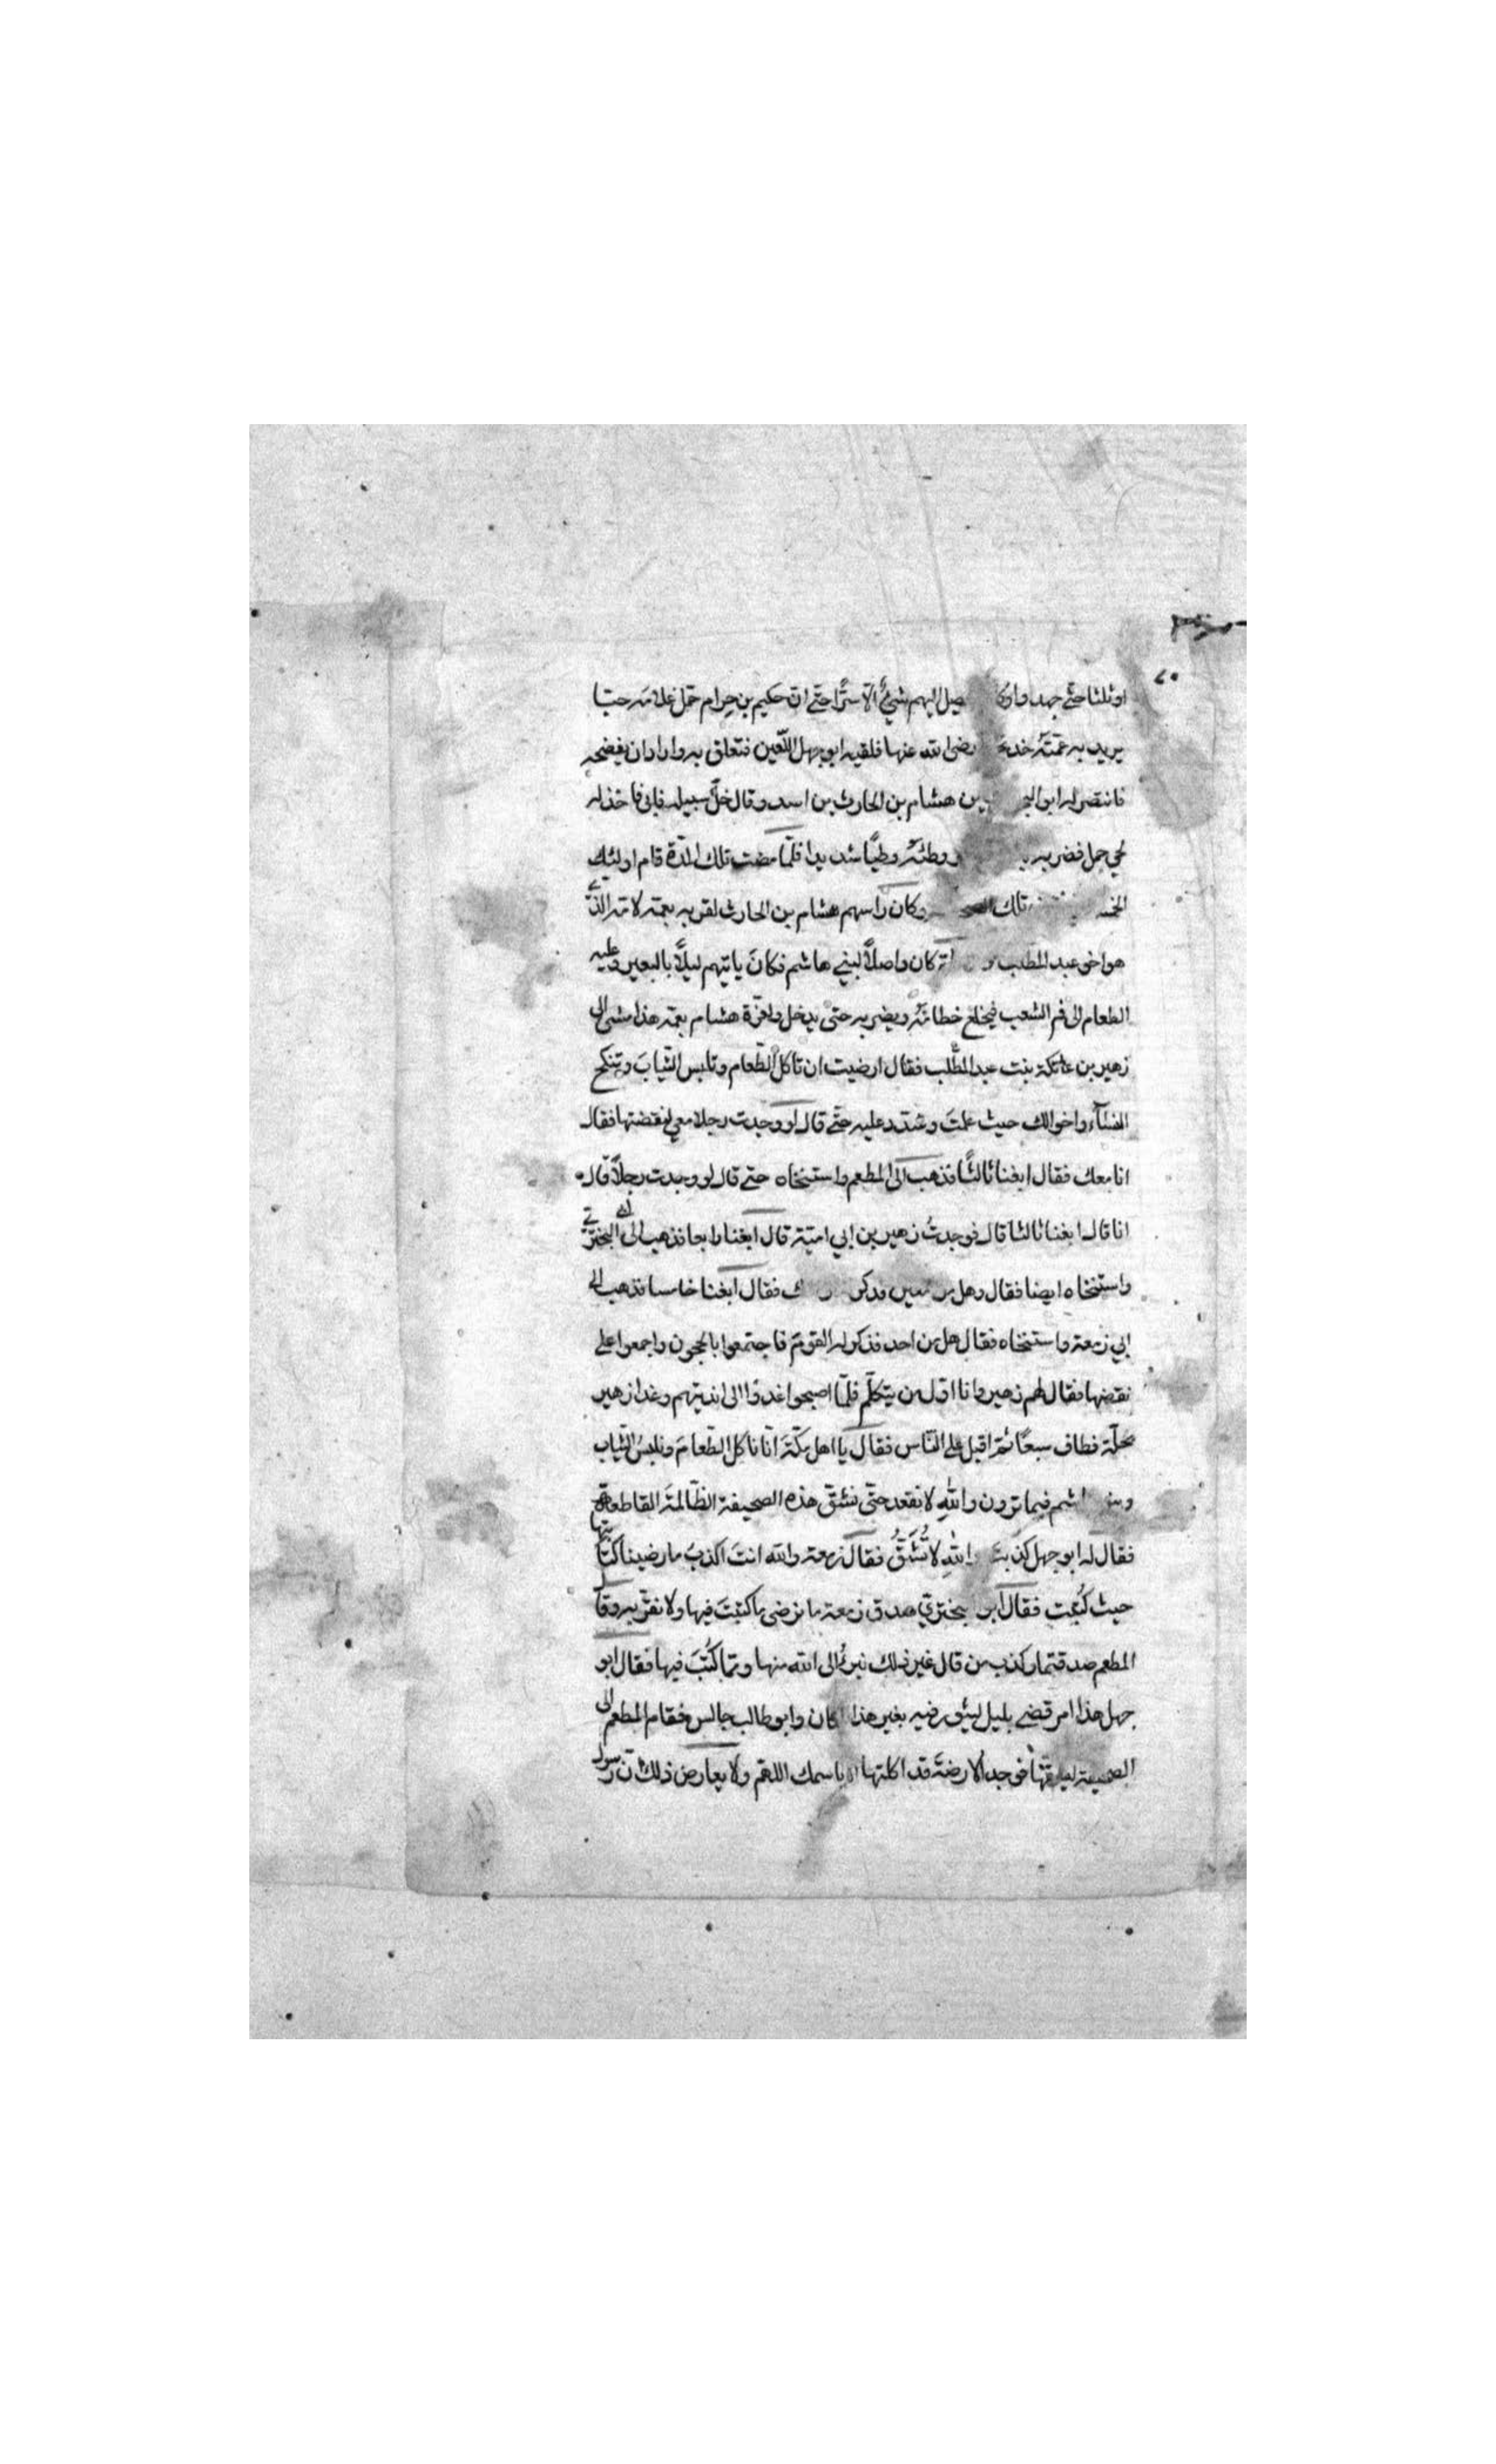 او ثلثا حتّى جهدوا وكان يصل اليهم شيءٌ الّا سرًّا حتّى انّ حكيم بن حزام حمل غلامه حبّا
يريد به عمّتَه خديجة رضى الله عنها فلقيه ابو جهل اللّعين فتعلق به واراد ان يفضحه
فانتصر له ابو البختري بن هشام بن الحارث بن اسد وقال خلّ سبيله فابى فاخذ له
لحي جمل فضربه به ووطئَه وطيًا شديدا فلمّا مضت تلك المدّة قام اولئك
الخمسة تلك الصحيفة وكان راسهم هشام بن الحارث لقربه بعمّه لامّه الذي
هو اخو عبد المطلب كان واصلًا لبني هاشم فكانَ ياتيهم ليلًا بالبعير وعليه
الطعام الى فم الشعب فيخلع خطامَه ويضربه حتى يدخل وافرة هشام بعمّه هذا مشى الى
زهير بن عاتكة بنت عبد المطّلب فقال ارضيت ان تاكل الطّعام وتلبس الثّيابَ وتنكح
النسآء واخوالك حيث علمتَ وشدّد عليه حتّى قال لو وجدت رجلا معي لنقضتها فقال
انا معك فقال ابغنا ثالثًا فذهب الى المطعم واستنخاه حتى قال لو وجدت رجلًا قال
انا قال ابغنا ثالثا قال فوجدتُ زهير بن ابي اميّة قال ابغنا رابعا فذهب الى ابي البختري
واستنخاه ايضا فقال وهل من معين فذكر فقال ابغنا خامسا فذهب الى
ابي زمعة واستنخاه فقال هل من احد فذكر له القومَ فاجتمعوا بالحجون واجمعوا على
نقضها فقال لهم زهير وانا اوّل من يتكلّم فلمّا اصبحوا غدوا الى انديتهم وغدا زهير
بحلّة فطاف سبعًا ثمّ اقبل على النّاس فقال يا اهل مكّةَ انّا ناكل الطّعامَ ونلبسُ الثّياب
وبنو هاشم فيما ترون واللهِ لا نقعد حتّى نشقّ هذه الصحيفة الظّالمةَ القاطعةَ
فقال له ابو جهل كذبت واللهِ لا تُشَقُّ فقال زمعة والله انتَ اكذبُ ما رضينا كتابتها
حيث كُتِبت فقال ابو البختريّ صدق زمعة ما نرضى ما كتبتَ فيها ولا نقرّ به وقال
المطعم صدقتما وكذب من قال غير ذلك نبرءُ الى الله منها وممّا كُتبَ فيها فقال ابو
جهل هذا امر قضي بليل ليشور فيه بغير هذا المكان وابو طالب جالس فقام المطعم الى
الصحيفة ليشقّها فوجد الارضةَ قد اكلتها الا باسمك اللهمّ ولا يعارض ذلك انّ رسول